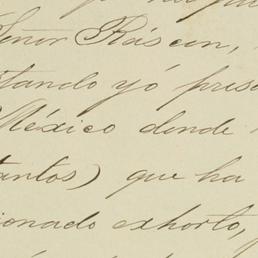 Señor Ráscon,
tando yó prese
México donde
tantos) que ha
ionado exhorto,